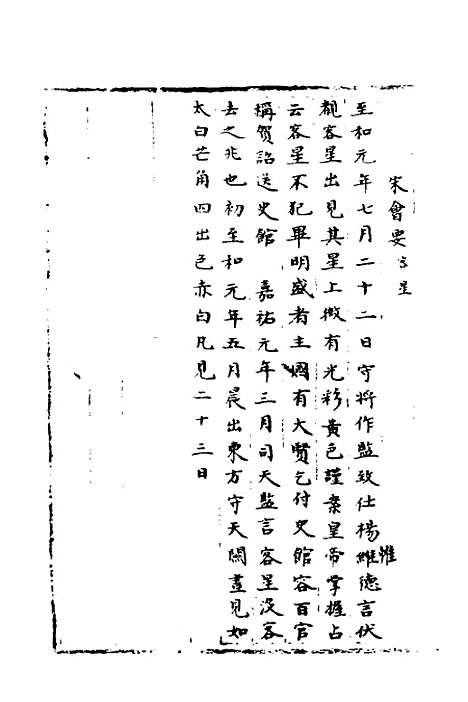 宋會要 客星
至和元年七月二十二日守將作監致仕楊維德言伏
惟
覩客星出見其星上微有光彩黃色謹案皇帝掌握占
云客星不犯畢明盛者主國有大賢乞付史館容百官
稱賀詔送史館 嘉祐元年三月司天監言客星沒客
去之兆也初至和元年五月晨出東方守天關晝見如
太白芒角四出色赤白凡見二十三日